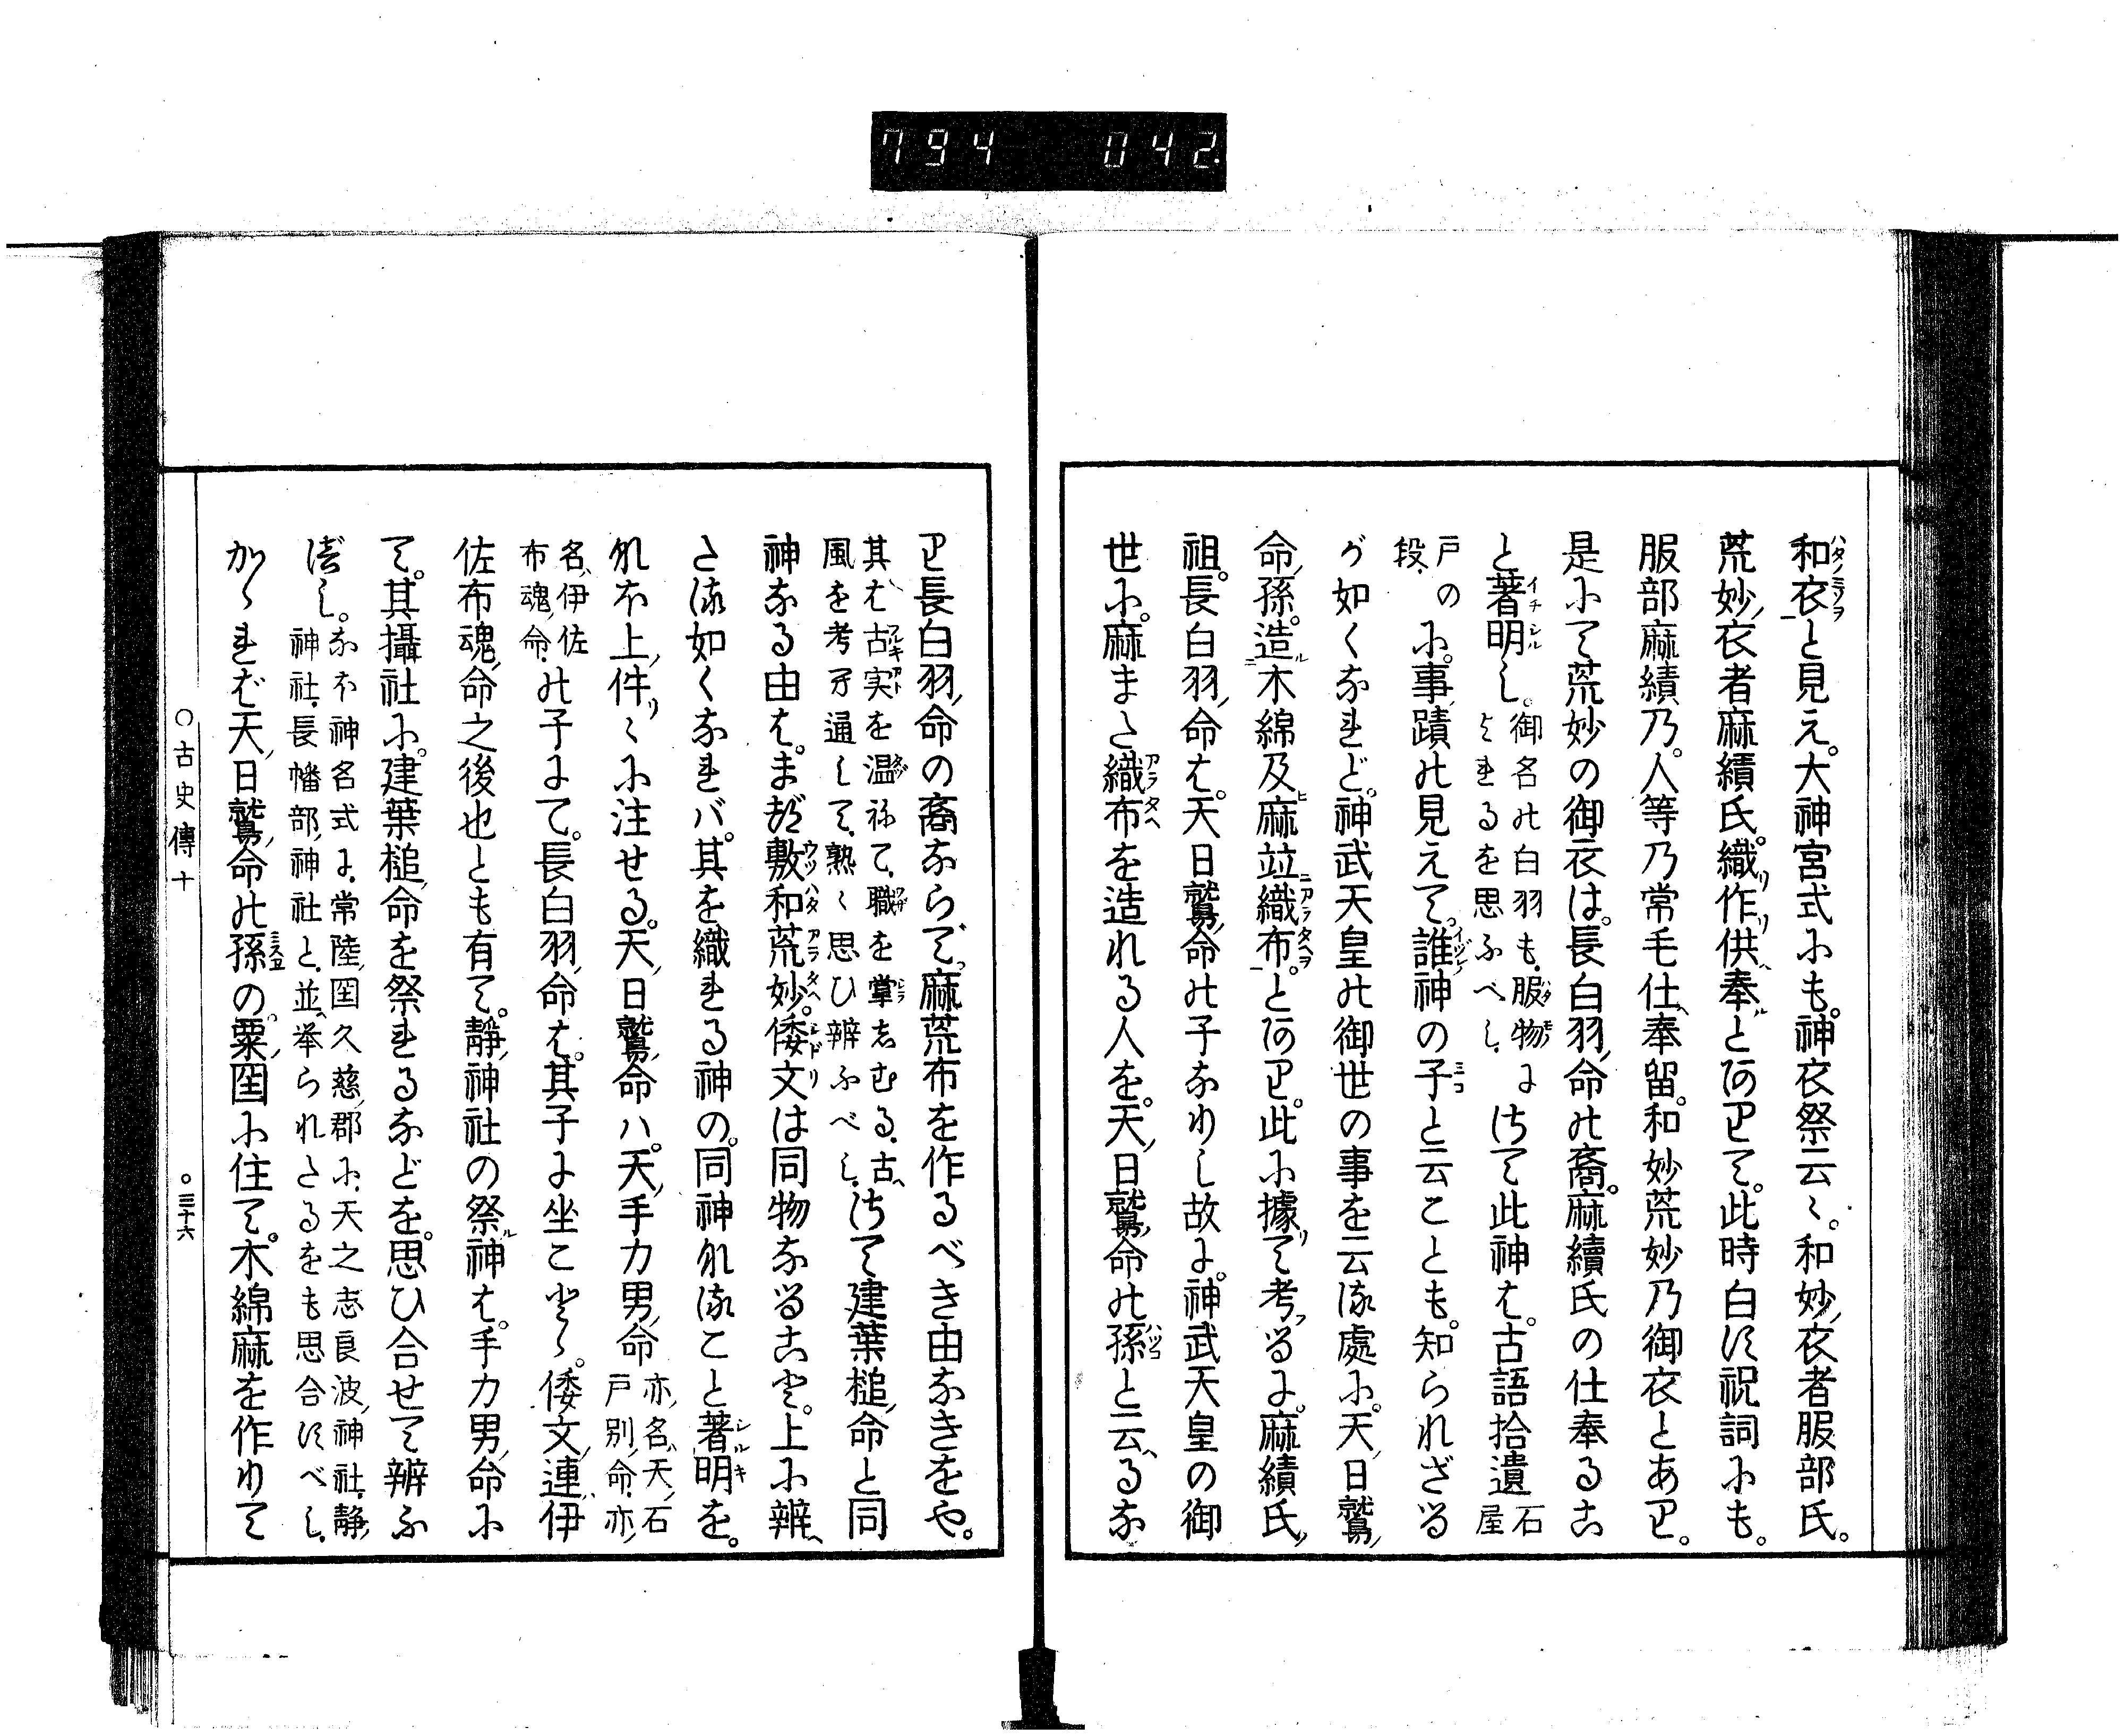 794 042.
和衣と見え。大神宮式にも。神衣祭云々。和妙衣者服部氏。
荒妙衣者麻績氏。織作供奉とありて。此時白す祝詞にも。
服部麻績乃。人等乃常毛仕奉留。和妙荒妙乃御衣とあり。
是にて荒妙の御衣は。長白羽命の裔。麻績氏の仕奉るこ
と著明し。御名の白羽も、服物によれるを思ふべし、さて此神は。古語拾遺石屋
戸の段、に。事蹟の見えて。誰神の子と云ことも。知られざる
が如くなれど。神武天皇の御世の事を云る處に。天日鷲
命孫。造木綿及麻竝織布。とあり。此に據て考るに。麻績氏
祖。長白羽命は。天日鷲命の子なりし故に。神武天皇の御
世に。麻また織布を造れる人を。天日鷲命の孫と云るな
り長白羽命の裔ならで。麻荒布を作るべき由なきをや。
其は古実を温ねて、職を掌しむる、古風を考へ通して、熟々思ひ辨ふべし、さて建葉槌命と同
神なる由は。まづ敷和荒妙。倭文は同物なること。上に辨
たる如くなれバ。其を織れる神の。同神なること著明を。
なほ上件々に注せる。天日鷲命ハ。天手力男命亦名、天石戸別命、亦
名、伊佐布魂命、の子にて。長白羽命は。其子に坐こと。倭文連、伊
佐布魂命之後也とも有て。静神社の祭神は。手力男命に
て。其攝社に。建葉槌命を祭れるなどを。思ひ合せて辨ふ
べし。なほ神名式に、常陸国久慈郡に、天之志良波神社、静神社、長幡部神社と、並挙られたるをも思合すべし、
かゝれば天日鷲命の孫の。粟国に住て。木綿麻を作りて
○古史傳十
○三十六